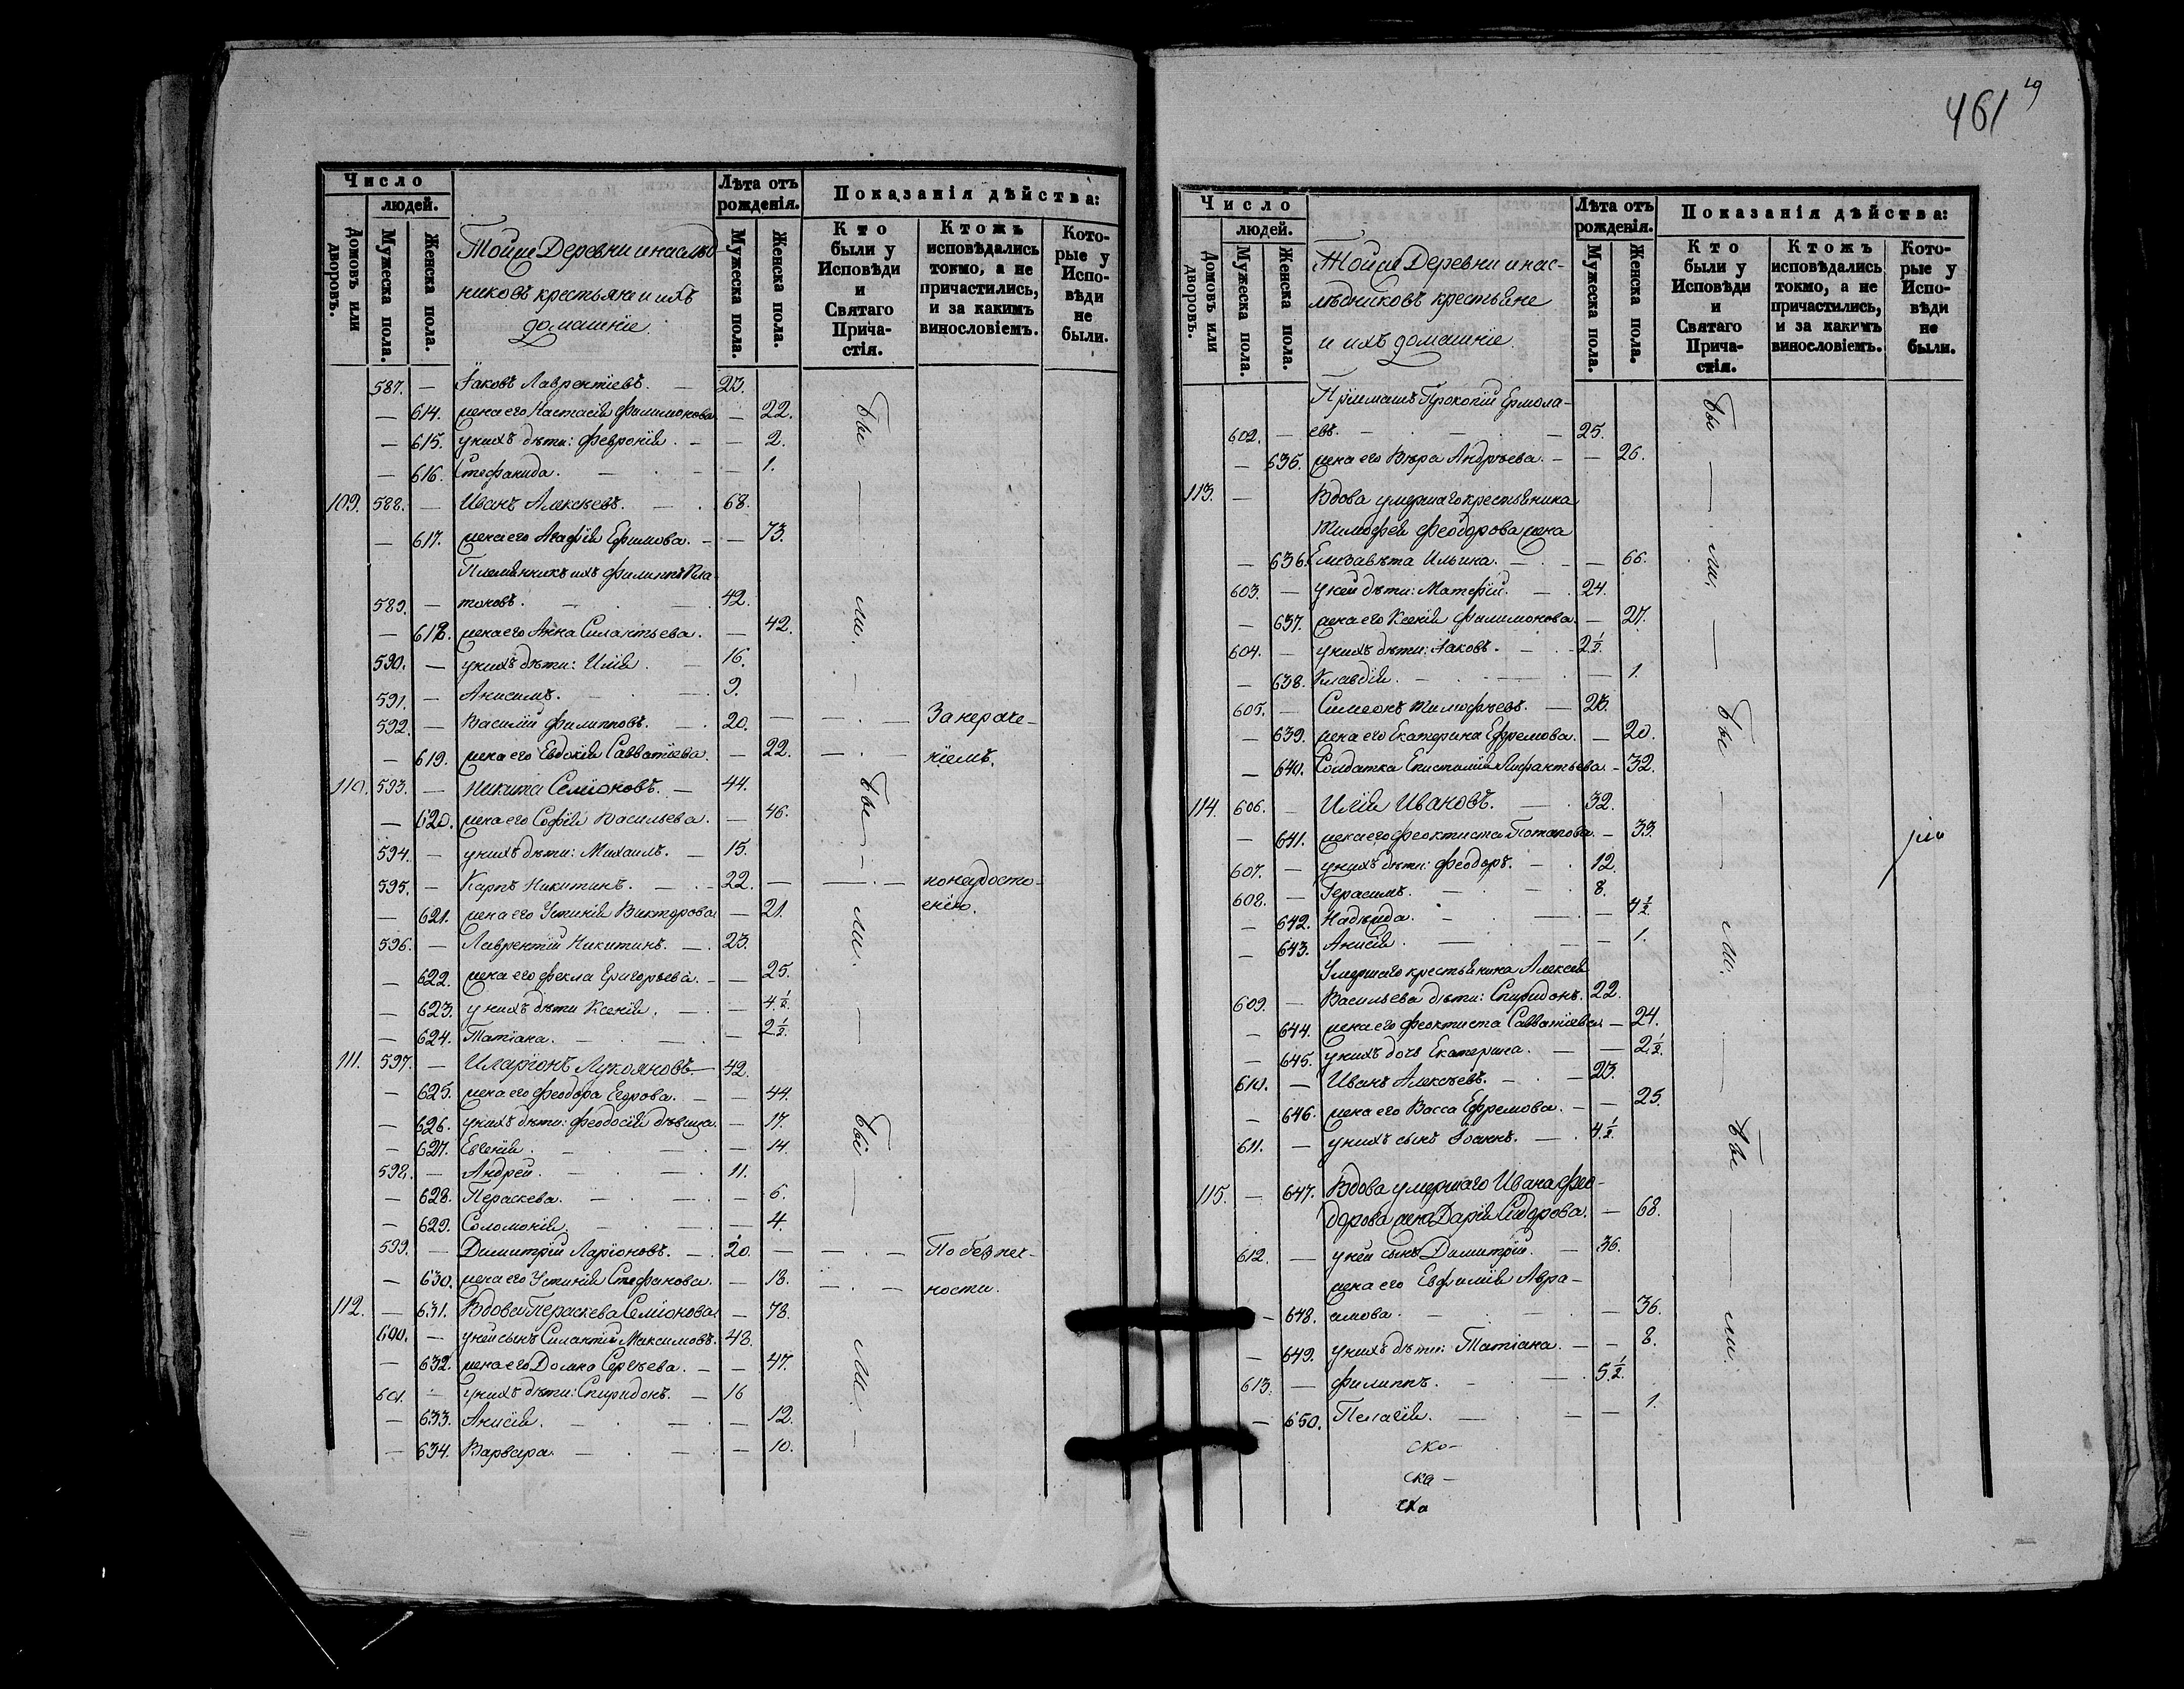 Число
людей.
Домовъ или дворовъ.
Мужеска пола.
Женска пола.
Тойже Деревни и наслѣд-
никовъ крестьяне и ихъ
домашніе.
Лѣта отъ рожденія.
Мужеска пола.
Женска пола.
Показанія дѣйства:
Кто были у Исповѣди и Святаго Прича-стія.
Ктожъ исповѣдались токмо, а не причастились, и за какимъ винословіемъ.
Кото-рые у Испо-вѣди не были.
587. — Іаковъ Лаврентіевъ. — 23.
— 614. жена его Настасія Филимонова. — 22.
— 615. у нихъ дѣти: Февронія. — — 2.
— 616. Стефанида. — — 1.
109. 588. — Иванъ Алексѣевъ. — 68.
— 617. жена его Агафія Ефимова. — — 73.
Племянникъ ихъ Филиппъ Пла-
589. — тоновъ. — 42.
— 618. жена его Анна Силантьева. — 42.
590. — у нихъ дѣти: Илія. — 16.
591. — Анисимъ. — 9.
592. — Василій Филипповъ. — 20. — — За нераче-
— 619. жена его Евдокія Савватіева. — 22. — — ніемъ.
110. 593. — Никита Семіоновъ. — 44.
— 620. жена его Софія Васильева. — 46.
594. — у нихъ дѣти: Михаилъ. — 15.
595. — Карпъ Никитинъ. — 22. — — по недосто-
— 621. жена его Устинія Викторова — 21.
596. — Лаврентій Никитинъ. — 23.
— 622. жена его Фекла Григорьева. — — 25.
— 623. у нихъ дѣти Ксенія. — — 4½.
— 624. Татіана. — — 2½.
111. 597. — Иларіонъ Лукояновъ. — 42.
— 625. жена его Феодора Егорова. — — 44.
— 626. у нихъ дѣти: Феодосія дѣвица. — 17.
— 627. Евгенія. — — 14.
598. — Андрей. — 11.
— 628. Параскева. — — 6.
— 629. Соломонія. — — 4.
599. — Димитрій Ларіоновъ. — 20. — — По безпеч-
— 630. жена его Устинія Стефанова. — 18. — — ности.
112. — 631. Вдова Параскева Семіонова — 78.
600. — у ней сынъ Силантій Максимовъ. 48.
— 632. жена его Домна Сергѣева. — — 47.
601. — у нихъ дѣти: Спиридонъ. — 16
— 633. Анисія. — — 12.
— 634. Варвара. — — 10.
Бы — ли. —
Бы — ли. —
Бы — ли. —
461
Число
людей.
Домовъ или дворовъ.
Мужеска пола.
Женска пола.
Тойже Деревни и нас-
лѣдниковъ крестьяне
и ихъ домашніе.
Лѣта отъ рожденія.
Мужеска пола.
Женска пола.
Показанія дѣйства:
Кто были у Исповѣди и Святаго Прича-стія.
Ктожъ исповѣдались токмо, а не причастились, и за какимъ винословіемъ.
Кото-рые у Испо-вѣди не были.
Пріимашъ Прокопій Ермола-
602. — евъ. — 25.
— 635. жена его Вѣра Андрѣева. — — 26.
113. — Вдова умершаго крестьянина
Тимофея Феодорова жена
— 636. Елизавѣта Ильина. — — 66.
603. — у ней дѣти: Матфій. — 24.
— 637. жена его Ксенія Филимонова. — 27.
604. — у нихъ дѣти: Іаковъ. — 2½.
— 638. Клавдія. — — 1.
605. — Симеонъ Тимофѣевъ. — 23.
— 639. жена его Екатерина Ефремова. — 20.
— 640. Солдатка Епистимія — 32.
114. 606. — Илія Ивановъ. — 32.
— 641. жена его Феоктиста Потапова. — 33.
607. — у нихъ дѣти: Феодоръ. — 12.
608. — Герасимъ. — 8.
— 642. Надежда. — — 4½.
— 643. Анисія. — — 1.
Умершаго крестьянина Алексѣя
609. — Васильева дѣти: Спиридонъ. 22.
— 644. жена его Феоктиста Савватіева. — 24.
— 645. у нихъ дочь Екатерина. — — 2½.
610. — Иванъ Алексѣевъ. — 23.
— 646. жена его Васса Ефремова. — — 25.
611. — у нихъ сынъ Іоаннъ. — 4½.
115. — 647. Вдова умершаго Ивана Фео-
дорова жена Дарія Сидорова. — 68.
612. — у ней сынъ Димитрій. — 36.
жена его Евфимія Авра-
— 648. амова. — — 36.
— 649. у нихъ дѣти: Татіана. — — 8.
613. — Филиппъ. — 5½.
— 650. Пелагія. — — 1.
Бы — ли. —
Бы — ли. —
Бы — ли.
ско-
ска-
ска